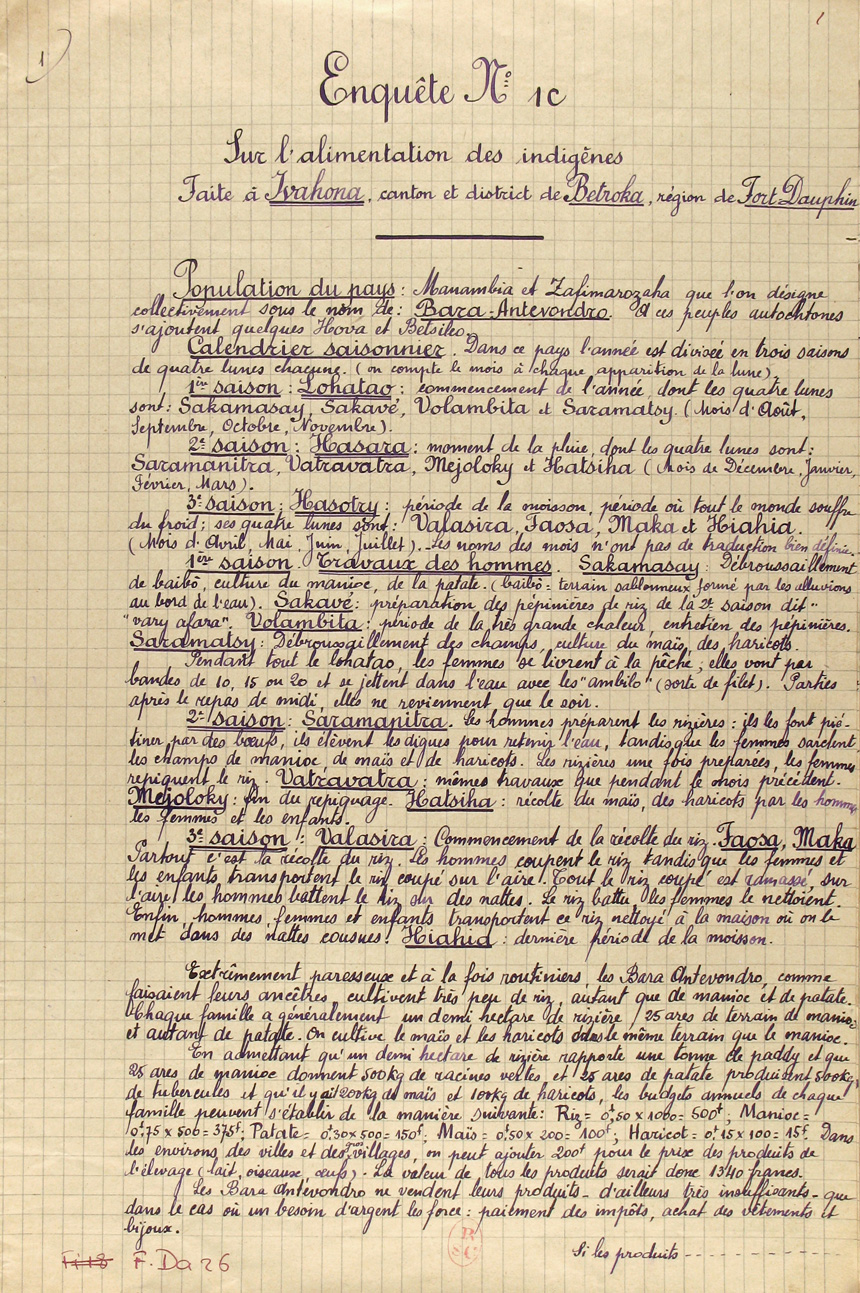 1
1
Enquête N° 1C
Sur l'alimentation des indigênes
Faite à Ivahona, canton et district de Betroka, région de Fort-Dauphin
Population du pays : Manambia et Zafimarozaha que l'on désigne
collectivement sous le nom de : Bara-Antevondro. A ces peuples autochtones
s'ajoutent quelques Hova et Betsileo.
Calendrier saisonnier. Dans ce pays l'année est divisée en trois saisons
de quatre lunes chacune. (on compte le mois à chaque apparition de la lune).
1ère saison : Lohatao : commencement de l'année, dont les quatre lunes
sont : Sakamasay, Sakavé, Volambita et Saramatsy. (Mois d'Août,
Septembre, Octobre, Novembre).
2e saison : Hasara : moment de la pluie, dont les quatre lunes sont :
Saramanitra, Vatravatra, Mejoloky et Hatsiha (Mois de Décembre, Janvier,
Février, Mars).
3e saison : Hasotry : période de la moisson, période où tout le monde souffre
du froid ; ses quatre lunes sont : Valasira, Faosa, Maka et Hiahia.
(Mois d'Avril, Mai, Juin, Juillet). - Les noms des mois n'ont pas de traduction bien définie.
1ère saison. Travaux des hommes. Sakamasay : Débroussaillement
de baibô, culture du manioc, de la patate. (baibô = terrain sablonneux formé par les alluvions
au bord de l'eau). Sakavé : préparation des pépinières de riz de la 2e saison dit "
"vary afara". Volambita : période de la très grande chaleur, entretien des pépinières.
Saramatsy : Débroussaillement des champs, culture du maïs, des haricots.
Pendant tout le lohatao, les femmes se livrent à la pêche ; elles vont par
bandes de 10, 15 ou 20 et se jettent dans l'eau avec les "ambilo" (sorte de filet). Parties
après le repas de midi, elles ne reviennent que le soir.
2e saison : Saramanitra. Les hommes préparent les rizières : ils les font pié-
tiner par des bœufs, ils élèvent les digues pour retenir l'eau, tandis que les femmes sarclent
les champs de manioc, de maïs et de haricots. Les rizières une fois préparées, les femmes
repiquent le riz. Vatravatra : mêmes travaux que pendant le mois précédent.
Mejoloky : fin du repiquage. Hatsiha : récolte du maïs, des haricots par les hommes
les femmes et les enfants.
3e saison : Valasira : Commencement de la récolte du riz. Faosa, Maka
Partout c'est la récolte du riz. Les hommes coupent le riz tandis que les femmes et
les enfants transportent le riz coupé sur l'aire. Tout le riz coupé est ramassé, sur
l'aire, les hommes battent le riz sur des nattes. Le riz battu, les femmes le nettoient.
Enfin, hommes, femmes et enfants transportent ce riz nettoyé à la maison où on le
met dans des nattes cousues. Hiahia : dernière période de la moisson.
Extrêmement paresseux et à la fois routiniers, les Bara Antevondro, comme
faisaient leurs ancêtres, cultivent très peu de riz, autant que de manioc et de patate.
Chaque famille a généralement un demi hectare de rizière, 25 ares de terrain de manioc
et autant de patate. On cultive le maïs et les haricots dans le même terrain que le manioc.
En admettant qu'un demi hectare de rizière rapporte une tonne de paddy et que
25 ares de manioc donnent 500kg de racines vertes, et 25 ares de patate produisent 500kg
de tubercules et qu'il y ait 200kg de maïs et 100kg de haricots, les budgets annuels de chaque
famille peuvent s'établir de la manière suivante : Riz = 0f,50 x 1000 = 500f ; Manioc =
0f,75 x 500 = 375f ; Patate = 0f,30 x 500 = 150f ; Maïs = 0f,50 x 200 = 100f ; Haricot = 0f,15 x 100 = 15f. Dans
les environs des villes et des gros villages, on peut ajouter 200f pour le prix des produits de
l'élevage (lait, oiseaux, œufs) - La valeur de tous les produits serait donc 1340 francs.
Les Bara Antévondro ne vendent leurs produits - d'ailleurs très insuffisants - que
dans le cas où un besoin d'argent les force : paiement des impôts, achat des vêtements et
bijoux.
Si les produits - - - - - - - -
F. Da 26